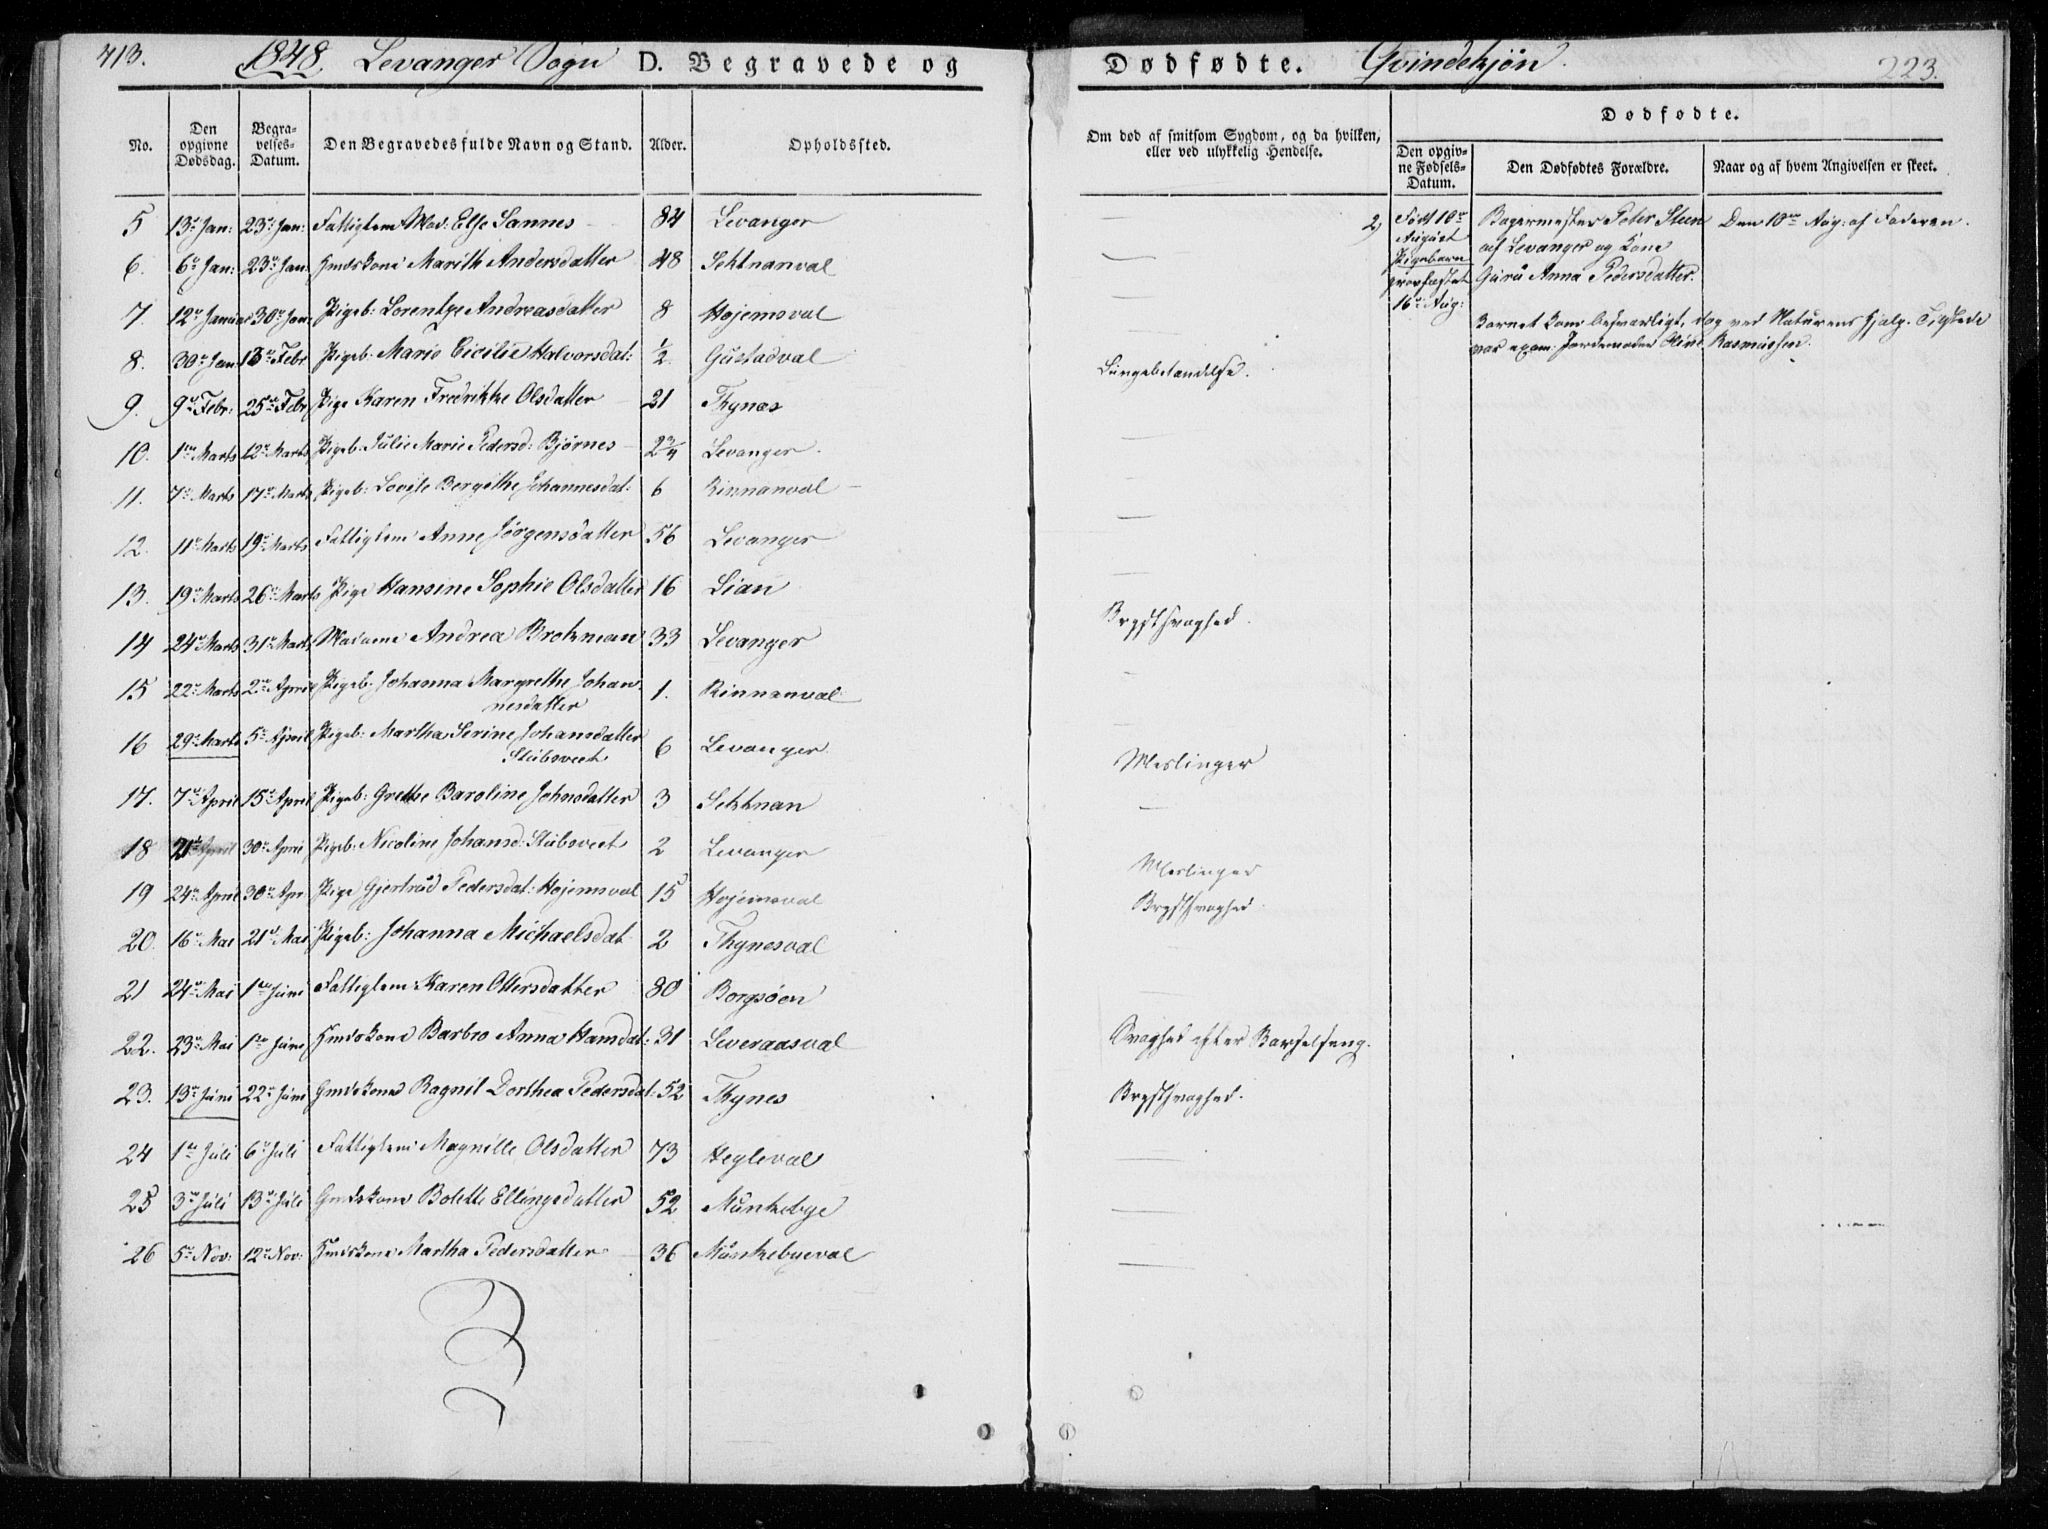 413. 1848. Levanger Sogn D. Begravede og Dødfødte. Qvindekjøn. 223.
No. Den opgivne Dødsdag. Begravelses-Datum. Den Begravedes fulde Navn og Stand. Alder. Opholdssted.
Om død af smitsom Sygdom, og da hvilken, eller ved ulykkelig Hendelse.
Dødfødte.
Den opgivne Fødsels-Datum. Den Dødfødtes Forældre. Naar og af hvem Angivelsen er skeet.
5 13de Jan: 23de Jan: Fattiglem Mad. Else Sannes 84 Levanger —
6. 6te Jan: 23de Jan: Hmdskone Marith Andersdatter 48 Sektnanval —
7. 12te Januar 30te Jan: Pigeb: Lorentze Andreasdatter 8 Hojemsval —
8. 30te Jan: 13de Febr Pigeb: Marie Cicilie Halvorsdat: ½ Gustadval Lungebetændelse.
9. 9de Febr: 25de Febr Pige Karen Fredrikke Olsdatter 21 Thynæs
10. 1ste Marts 12te Marts Pigeb: Julie Marie Pedersd: Bjørnes 2¾ Levanger
11. 7de Marts 17de Marts Pigeb: Lovise Bergithe Johannesdat: 6 Rinnanval —
12. 11te Marts 19de Marts Fattiglem Anne Jørgensdatter 56 Levanger —
13. 19de Marts 26de Marts Pige Hansine Sophie Olsdatter 16 Lian Brystsvaghed.
14 24de Marts 31te Marts Madame Andrea Brokman 33 Levanger
15 22de Marts 2den April Pigeb: Johanna Margrethe Johan-
nesdatter 1. Rinnanval —
16 29de Marts 5te April Pigeb: Martha Serine Johansdatter
Stubsveet 6 Levanger. Meslinger
17. 7de April 15de April Pigeb: Grethe Baroline Johnsdatter 3 Sektnan —
18 21de April 30te April Pigeb: Nicoline Johansd: Stubsveet 2 Levanger Meslinger
19 24de April 30te Apr: Pige Gjertrud Pedersdat: Hojemsval 15 Hojemsval Brystsvaghed.
20. 16de Mai 21de Mai Pigeb: Johanna Michaelsdat 2 Thynesval —
21 24de Mai 1ste Juni Fattiglem Karen Ottersdatter 80 Borgsøen —
22. 23de Mai 1ste Juni Hmdskone Barbro Anna Hansdat: 31 Leveraasval Svaghed efter Barselseng.
23. 13de Juni 22de Juni Gmdskone Ragnil Dorthea Pedersdat: 52 Thynes Brystsvaghed.
24 1ste Juli 6te Juli Fattiglem Magnille Olsdatter 73 Hegleval —
25 3de Juli 13de Juli Gmdskone Bolette Ellingsdatter 52 Munkebye —
26 5te Nov: 12te Nov: Hmdskone Martha Pedersdatter 36 Munkebyeval —
2) Født 10de
August
Pigebarn
jordfæstet
16de Aug:
Bagermester Peter Steen
af Levanger og Kone
Guru Anna Pedersdatter.
Den 10de Aug: af Faderen.
Barnet kom besværligt, dog ved Naturens Hjælp. Tilstede
var exam: Jordemoder Oline Rasmussen.